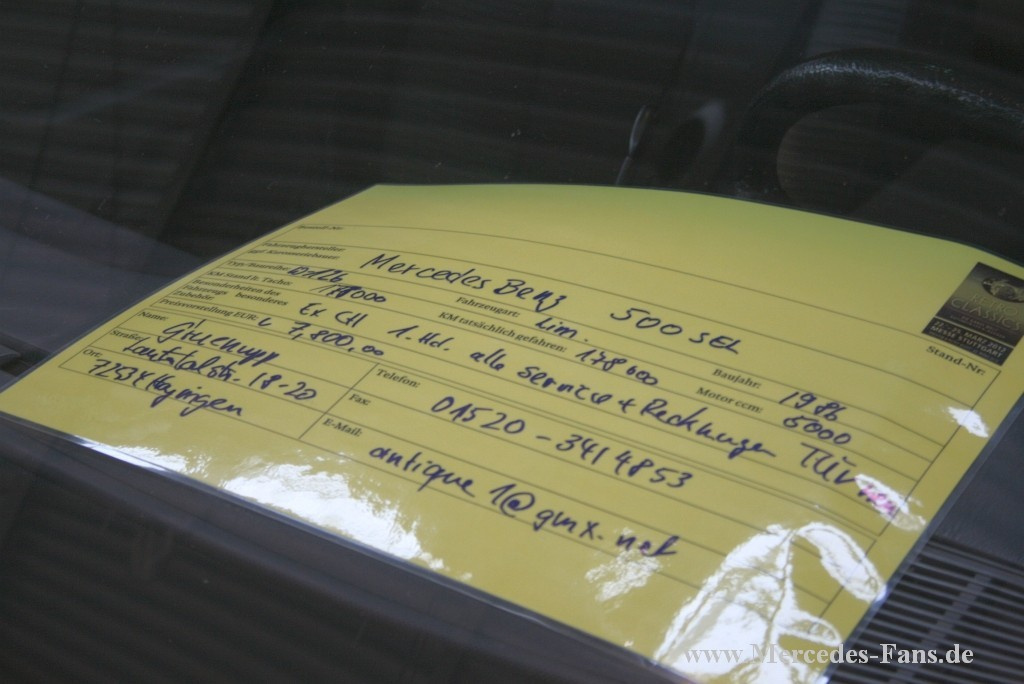 Mercedes Benz 500 SEL
Typ/Baureihe: W126 Fahrzeugart: Lim. Baujahr: 1986
KM Stand lt. Tacho: KM tatsächlich gefahren: 178000 Motor ccm: 5000
besonderes Ex CH 1. Hd. alle service + Rechnungen TÜV neu
Preisvorstellung EUR: 7,800,00
Name:
Straße: 18-20
Ort: Hayingen
Telefon: 01520-3414853
Fax:
E-Mail: antique1@gmx.net
Stand-Nr:
RETRO
CLASSICS
MESSE STUTTGART
www.Mercedes-Fans.de